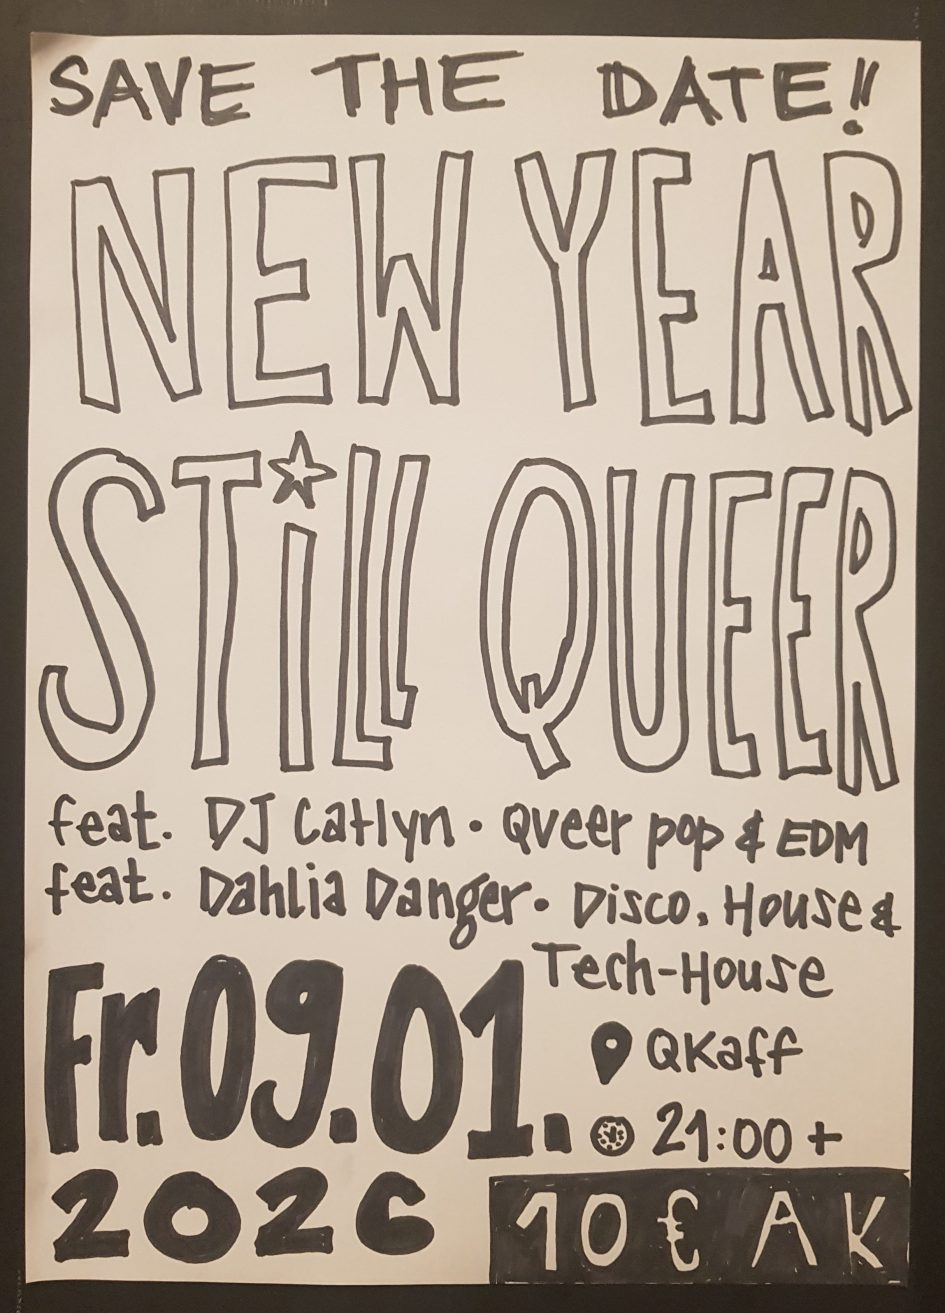 SAVE THE DATE!!
NEW YEAR
STiLL QUEER
feat. DJ Catlyn · Queer pop & EDM
feat. Dahlia Danger · Disco, House &
Tech-House
Fr. 09.01.
QKaff
21:00 +
2026
10 € AK